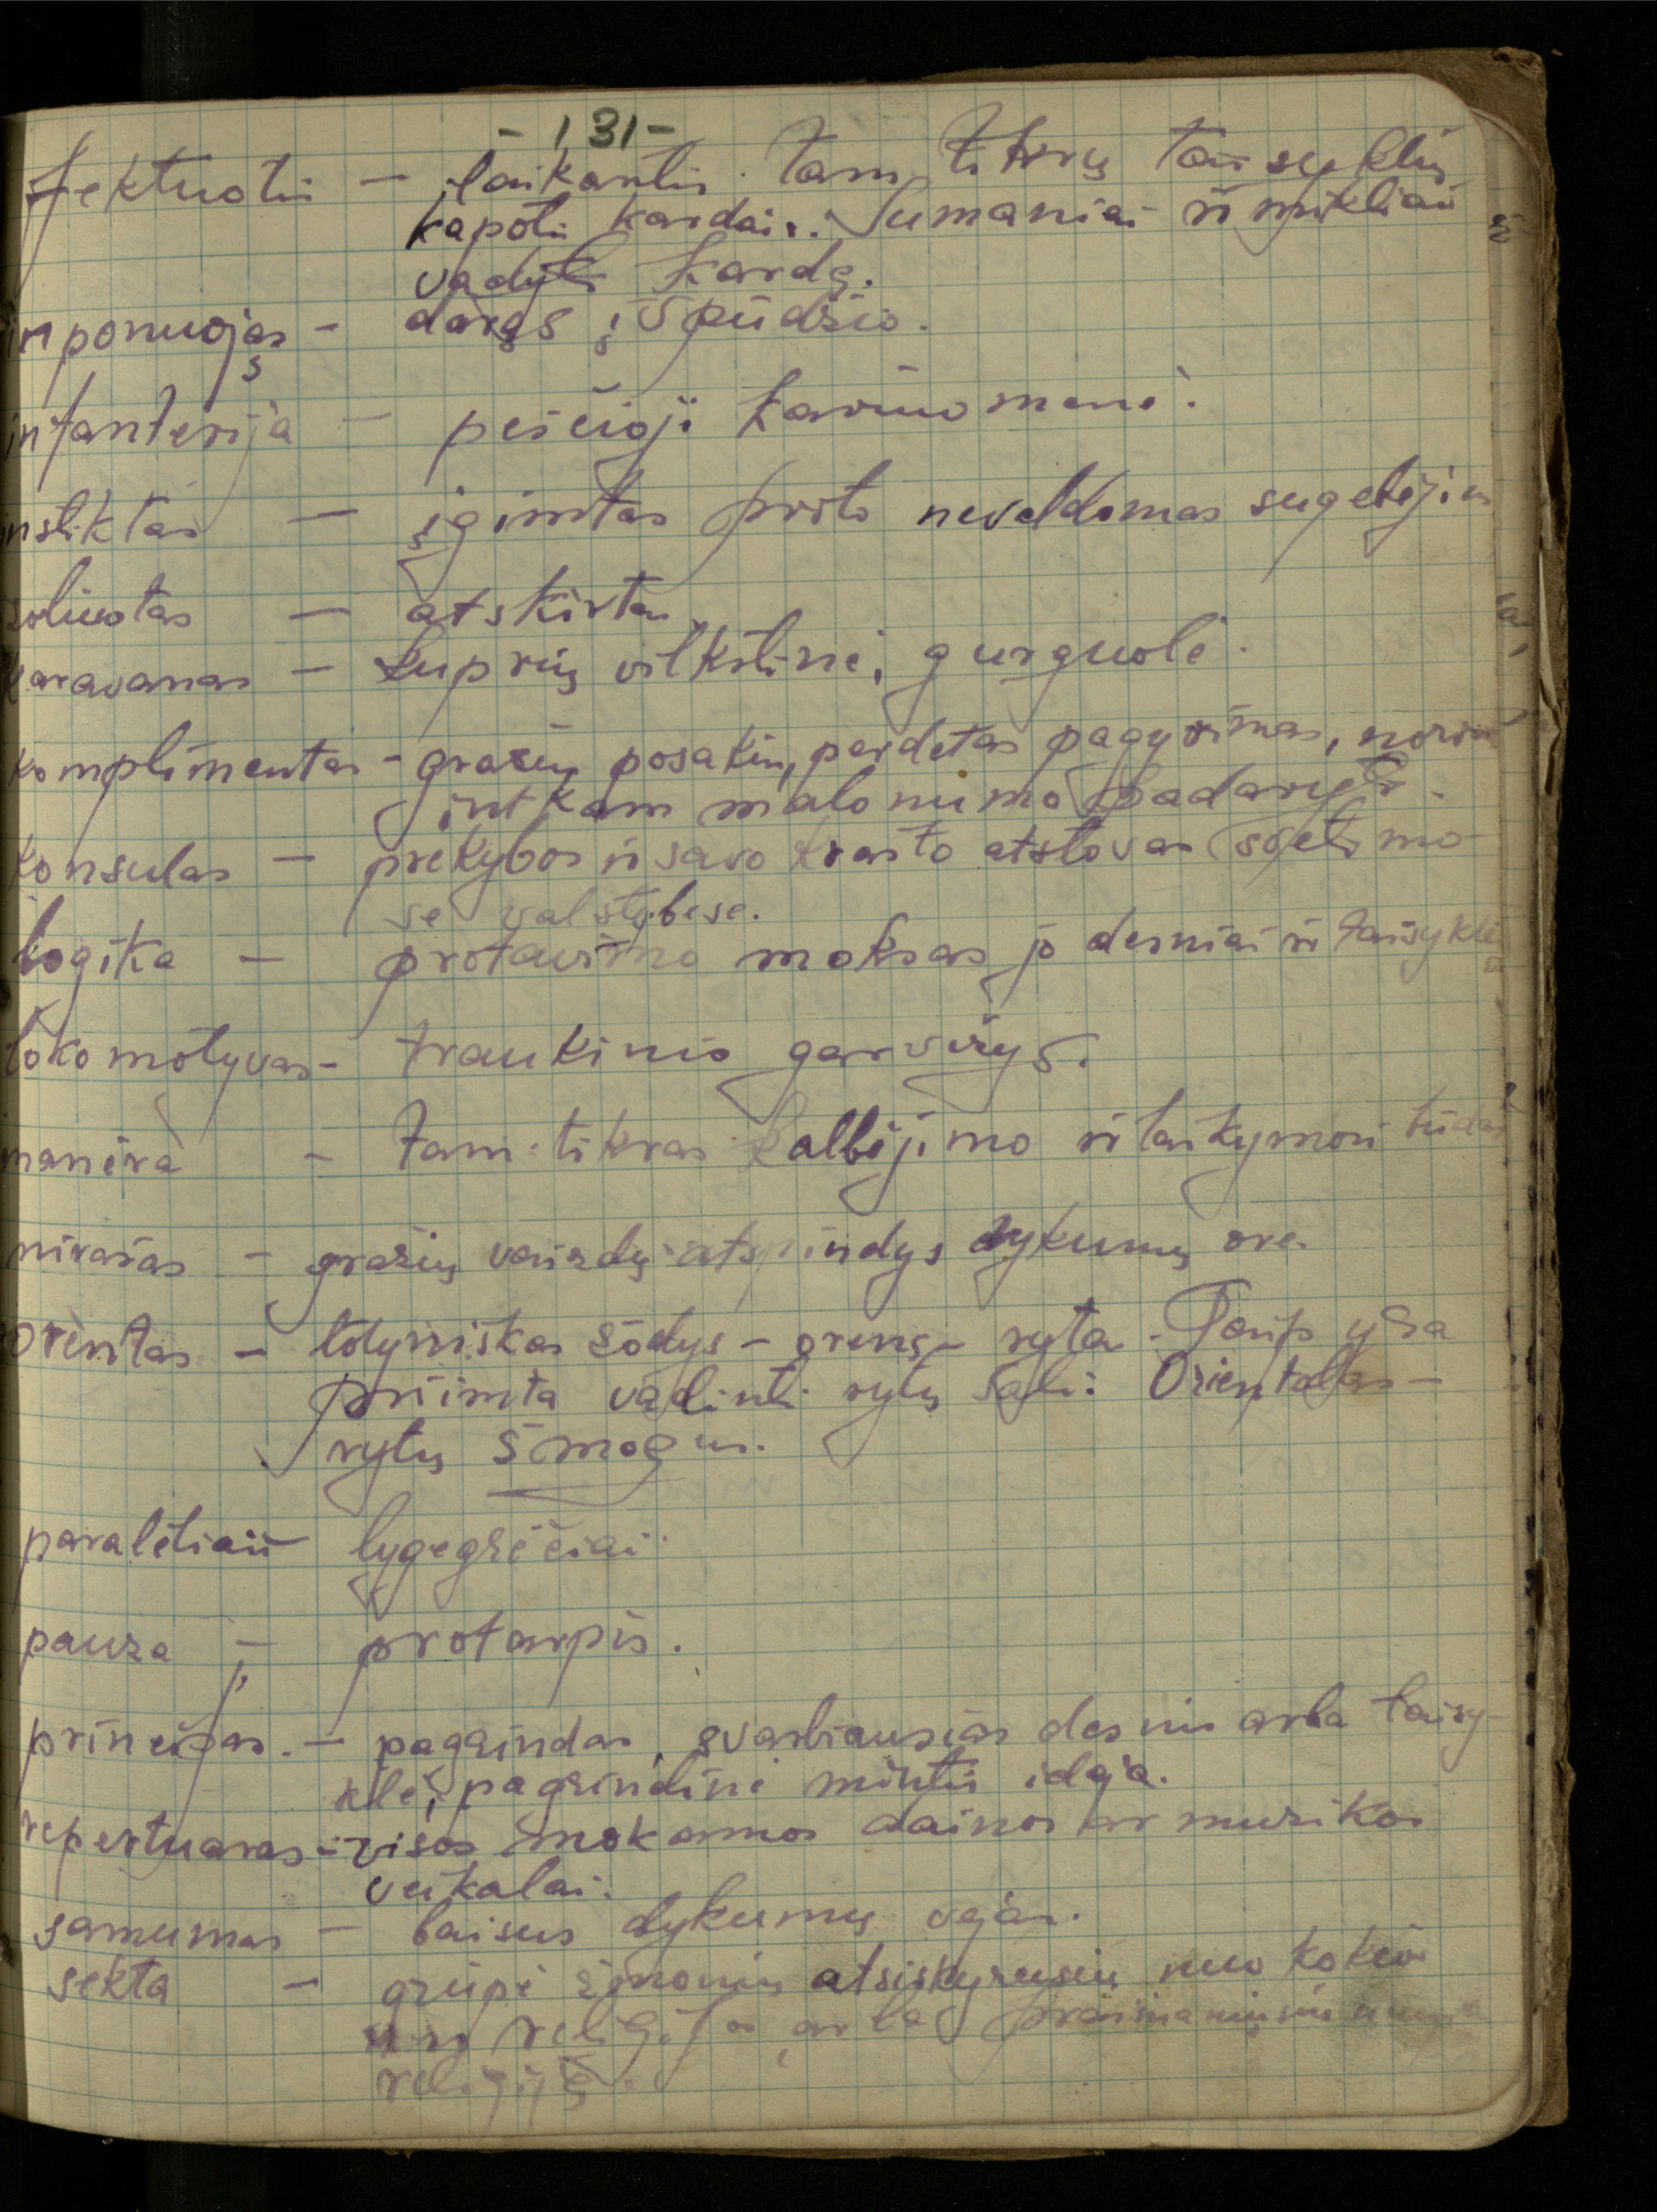 - 131 -
fektuotis - laikantis tam tikrų taisyklių
kapotis kardais. Sumaniai ir mikliai
vadyti kardą.
imponuojąs - darąs įspūdžio.
infanterija - pėsčioji kariuomenė.
instiktas - įgimtas proto nevaldomas sugebėjim
izoliuotas - atskirtas
karavanas - kuprių vilkstinė, gurguolė.
komplimentas - gražių posakių, perdėtas pagyrimas, norint
kam malonumo padaryti.
konsulas - prekybos ir savo krašto atstovas svetimo-
se valstybėse.
logika - protavimo moksas jo dėsniai ir taisyklė
lokomotyvas - traukinio garvežys.
maniera - tam tikras kalbėjimo ir laikymosi būdas
miražas - gražių vaizdų atspindys dykumų ore.
orientas - lotyniškas žodys - oriens - ryta. Taip yra
priimta vadinti rytų šali: Orientalas -
rytų žmogus.
paraleliai - lygegrečiai
pauza - protarpis.
principas. - pagrindas, svarbiausias dėsnis arba taisy-
klė, pagrindinė mintis idėja.
repertuaras - visos mokamos dainos ar muzikos
veikalai.
samumas - baisus dykumų vėjas.
sekta - grupė žmonių atsiskyrusių nuo kokios
nors religijos arba
religiją.